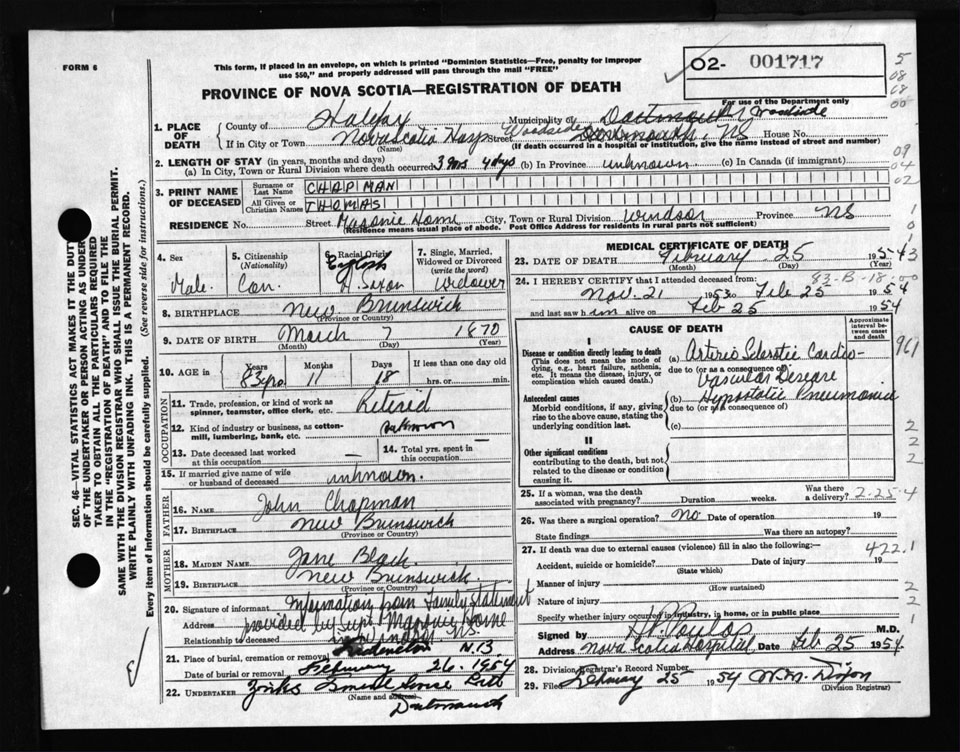 FORM 6
This form, if placed in an envelope, on which is printed "Dominion Statistics—Free, penalty for improper
use $50," and properly addressed will pass through the mail "FREE"
02- 001717
PROVINCE OF NOVA SCOTIA—REGISTRATION OF DEATH
For use of the Department only
1. PLACE OF DEATH
County of Halifax Municipality of Dartmouth Woodside
If in City or Town Nova Scotia Hosp Street Woodside Dartmouth, NS House No.
(Name) (If death occurred in a hospital or institution, give the name instead of street and number)
2. LENGTH OF STAY (in years, months and days)
(a) In City, Town or Rural Division where death occurred 3 mos 4 days (b) In Province unknown (c) In Canada (if immigrant)
3. PRINT NAME OF DECEASED
Surname or Last Name CHAPMAN
All Given or Christian Names THOMAS
RESIDENCE No. Street Masonic Home City, Town or Rural Division Windsor Province NS
(Residence means usual place of abode. Post Office Address for residents in rural parts not sufficient)
4. Sex Male
5. Citizenship (Nationality) Can.
6. Racial Origin English
7. Single, Married, Widowed or Divorced (write the word) Widower
8. BIRTHPLACE New Brunswick
(Province or Country)
9. DATE OF BIRTH March 7 1870
(Month) (Day) (Year)
10. AGE in Years 83 yrs Months 11 Days 18 If less than one day old
hrs. or min.
OCCUPATION
11. Trade, profession, or kind of work as spinner, teamster, office clerk, etc. Retired
12. Kind of industry or business, as cotton-mill, lumbering, bank, etc. unknown
13. Date deceased last worked at this occupation —
14. Total yrs. spent in this occupation —
15. If married give name of wife or husband of deceased unknown.
FATHER
16. NAME John Chapman
17. BIRTHPLACE New Brunswick
(Province or Country)
MOTHER
18. MAIDEN NAME Jane Black
19. BIRTHPLACE New Brunswick.
(Province or Country)
20. Signature of informant Information from Family statement
Address provided by Supt Masonic Home
Relationship to deceased in Windsor NS.
21. Place of burial, cremation or removal N.B.
Date of burial or removal February 26 - 1954
22. UNDERTAKER
(Name and address)
Dartmouth
MEDICAL CERTIFICATE OF DEATH
23. DATE OF DEATH February 25 1954
(Month) (Day) (Year)
24. I HEREBY CERTIFY that I attended deceased from: 83-B-18-
Nov. 21 1953 to Feb 25 1954
and last saw him alive on Feb 25 1954
CAUSE OF DEATH
Approximate interval between onset and death
I
Disease or condition directly leading to death
(This does not mean the mode of dying, e.g., heart failure, asthenia, etc. It means the disease, injury, or complication which caused death.)
(a) Arterio Sclerotic Cardio-
due to (or as a consequence of)
Vascular Disease
Antecedent causes
Morbid conditions, if any, giving rise to the above cause, stating the underlying condition last.
(b) Hypostatic Pneumonia
due to (or as a consequence of)
(c)
II
Other significant conditions
contributing to the death, but not related to the disease or condition causing it.
25. If a woman, was the death associated with pregnancy? Duration weeks. Was there a delivery? 2-25-4
26. Was there a surgical operation? No Date of operation 19
State findings Was there an autopsy?
27. If death was due to external causes (violence) fill in also the following:— 422.1
Accident, suicide or homicide? Date of injury 19
(State which)
Manner of injury
(How sustained)
Nature of injury
Specify whether injury occurred in industry, in home, or in public place
Signed by M.D.
Address Nova Scotia Hospital, Date Feb 25 1954.
28. Division Registrar's Record Number
29. Filed February 25 1954 W.M. Dixon
(Division Registrar)
SEC. 46—VITAL STATISTICS ACT MAKES IT THE DUTY
OF THE UNDERTAKER OR PERSON ACTING AS UNDER-
TAKER TO OBTAIN ALL THE PARTICULARS REQUIRED
IN THE "REGISTRATION OF DEATH" AND TO FILE THE
SAME WITH THE DIVISION REGISTRAR WHO SHALL ISSUE THE BURIAL PERMIT.
WRITE PLAINLY WITH UNFADING INK. THIS IS A PERMANENT RECORD.
Every item of information should be carefully supplied. (See reverse side for instructions.)
5
08
68
00
09
04
02
961